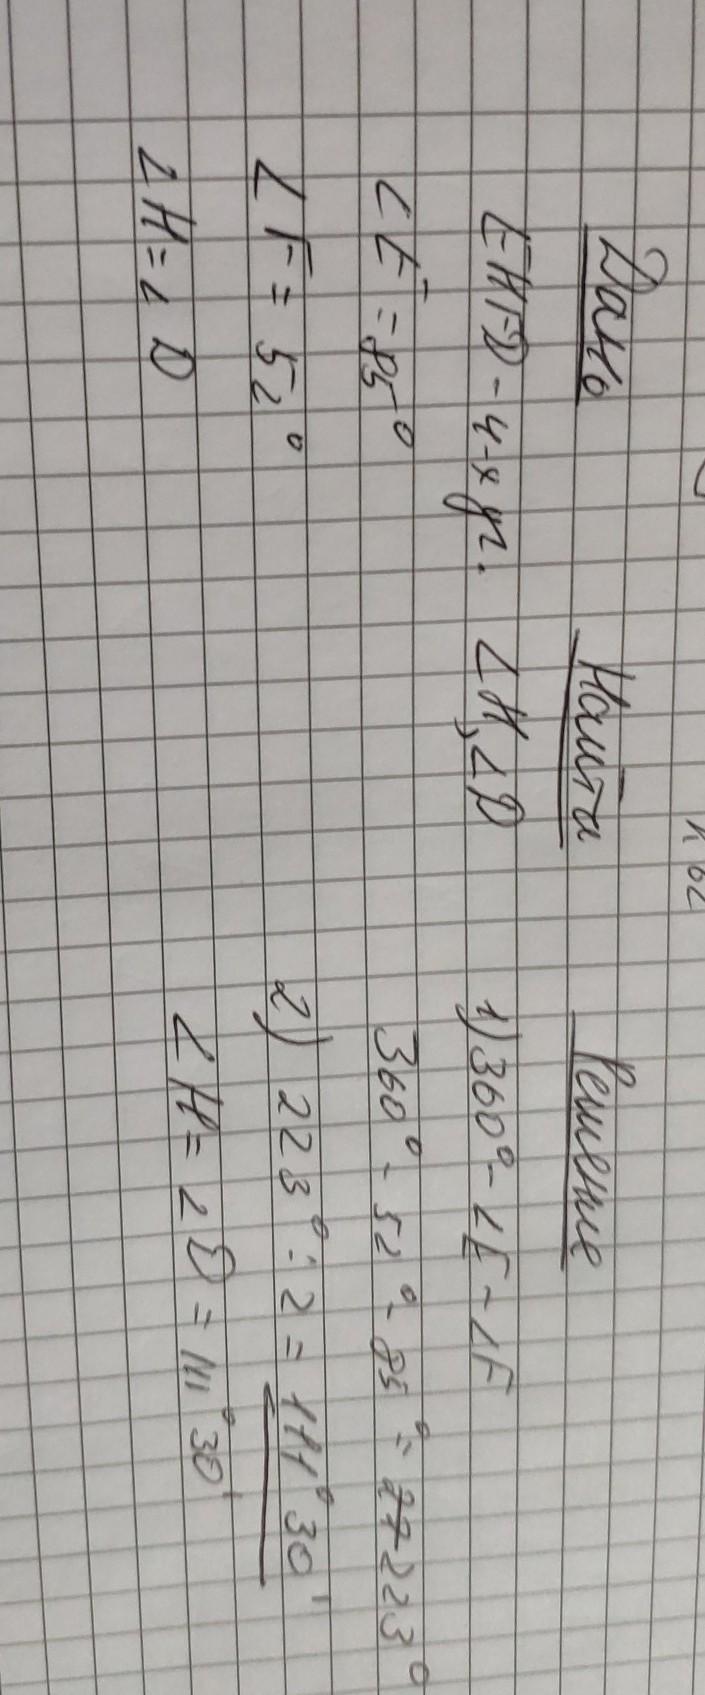 Дано
EHFD - 4-х уг.
∠E = 85°
∠F = 52°
∠H = ∠D
Найти
∠H, ∠D
Решение
1) 360° - ∠E - ∠F
360° - 52° - 85° = 223°
2) 223° : 2 = 111° 30'
∠H = ∠D = 111° 30'